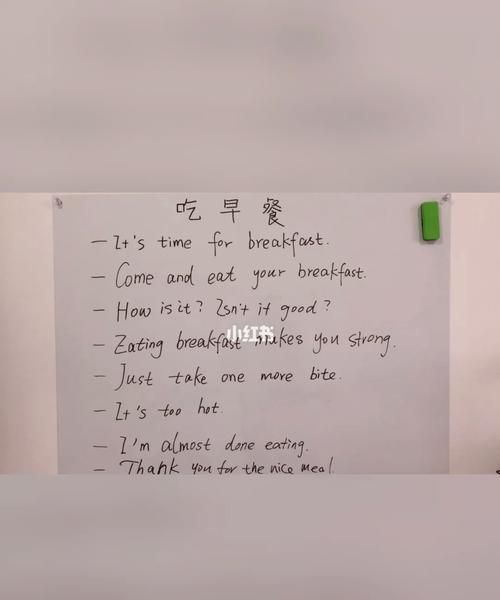 吃早餐
— It's time for breakfast.
— Come and eat your breakfast.
— How is it? Isn't it good?
小红书
— Eating breakfast makes you strong.
— Just take one more bite.
— It's too hot.
— I'm almost done eating.
— Thank you for the nice meal.